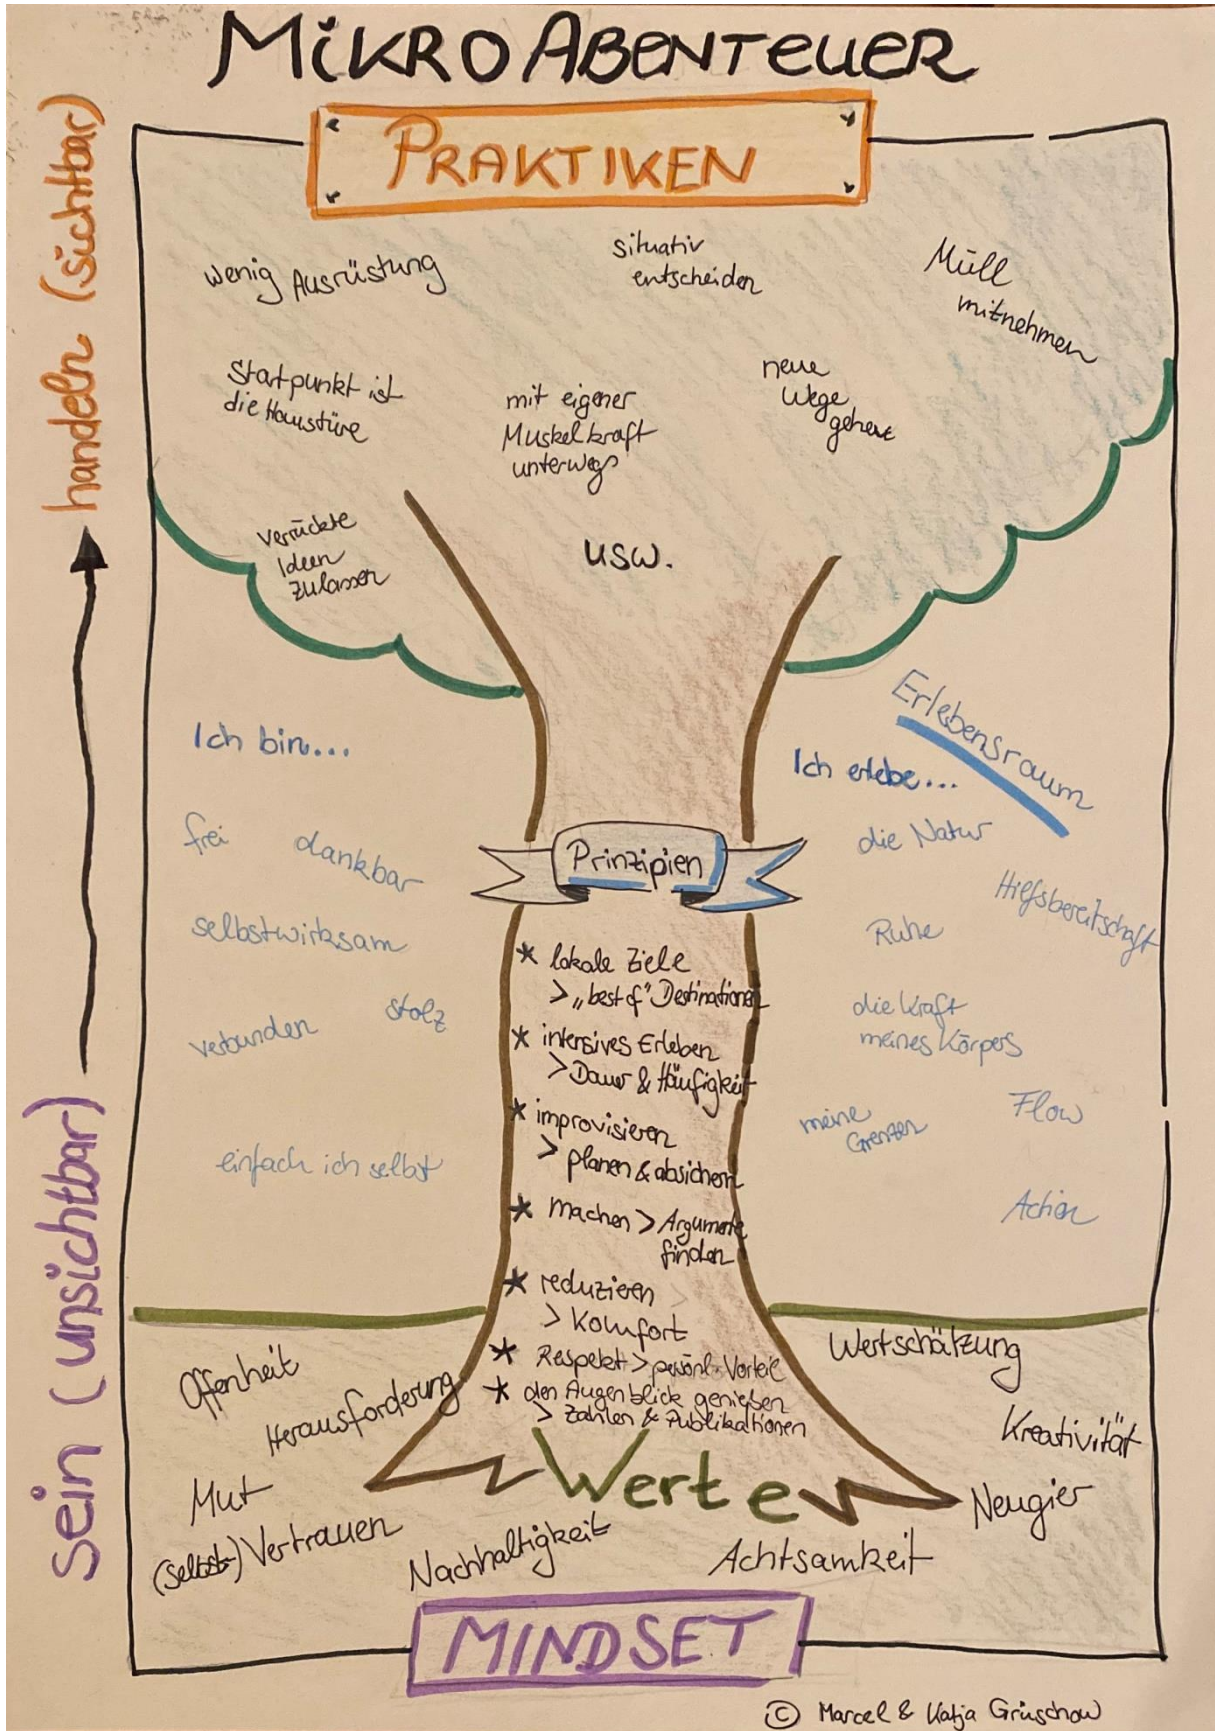 MIKROABENTEUER
PRAKTIKEN
handeln (sichtbar)
sein (unsichtbar)
wenig Ausrüstung
situativ
entscheiden
Müll
mitnehmen
Startpunkt ist
die Haustüre
mit eigener
Muskelkraft
unterwegs
neue
Wege
gehen
verrückte
Ideen
zulassen
usw.
Ich bin...
frei
dankbar
selbstwirksam
stolz
verbunden
einfach ich selbst
Erlebensraum
Ich erlebe...
die Natur
Hilfsbereitschaft
Ruhe
die Kraft
meines Körpers
Flow
meine
Grenzen
Action
Prinzipien
* lokale Ziele
> „best of“ Destinationen
* intensives Erleben
> Dauer & Häufigkeit
* improvisieren
> planen & absichern
* machen > Argumente
finden
* reduzieren
> Komfort
* Respekt > persönl. Vorteil
* den Augenblick genießen
> Zahlen & Publikationen
Werte
Offenheit
Herausforderung
Mut
(selbst-) Vertrauen
Nachhaltigkeit
Achtsamkeit
Neugier
Kreativität
Wertschätzung
MINDSET
© Marcel & Katja Grüschow